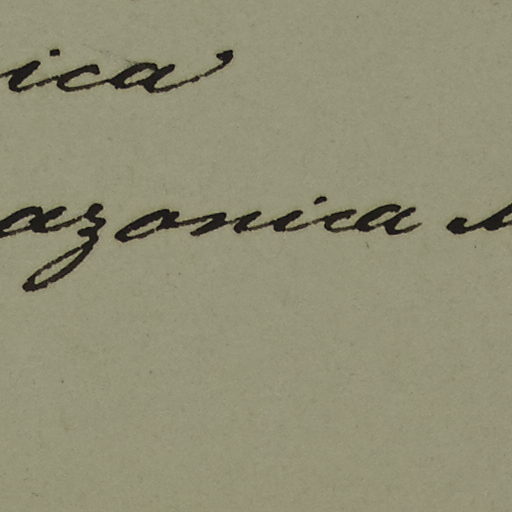 ica
azonica